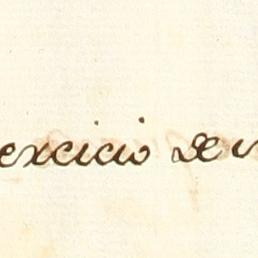 excicio de